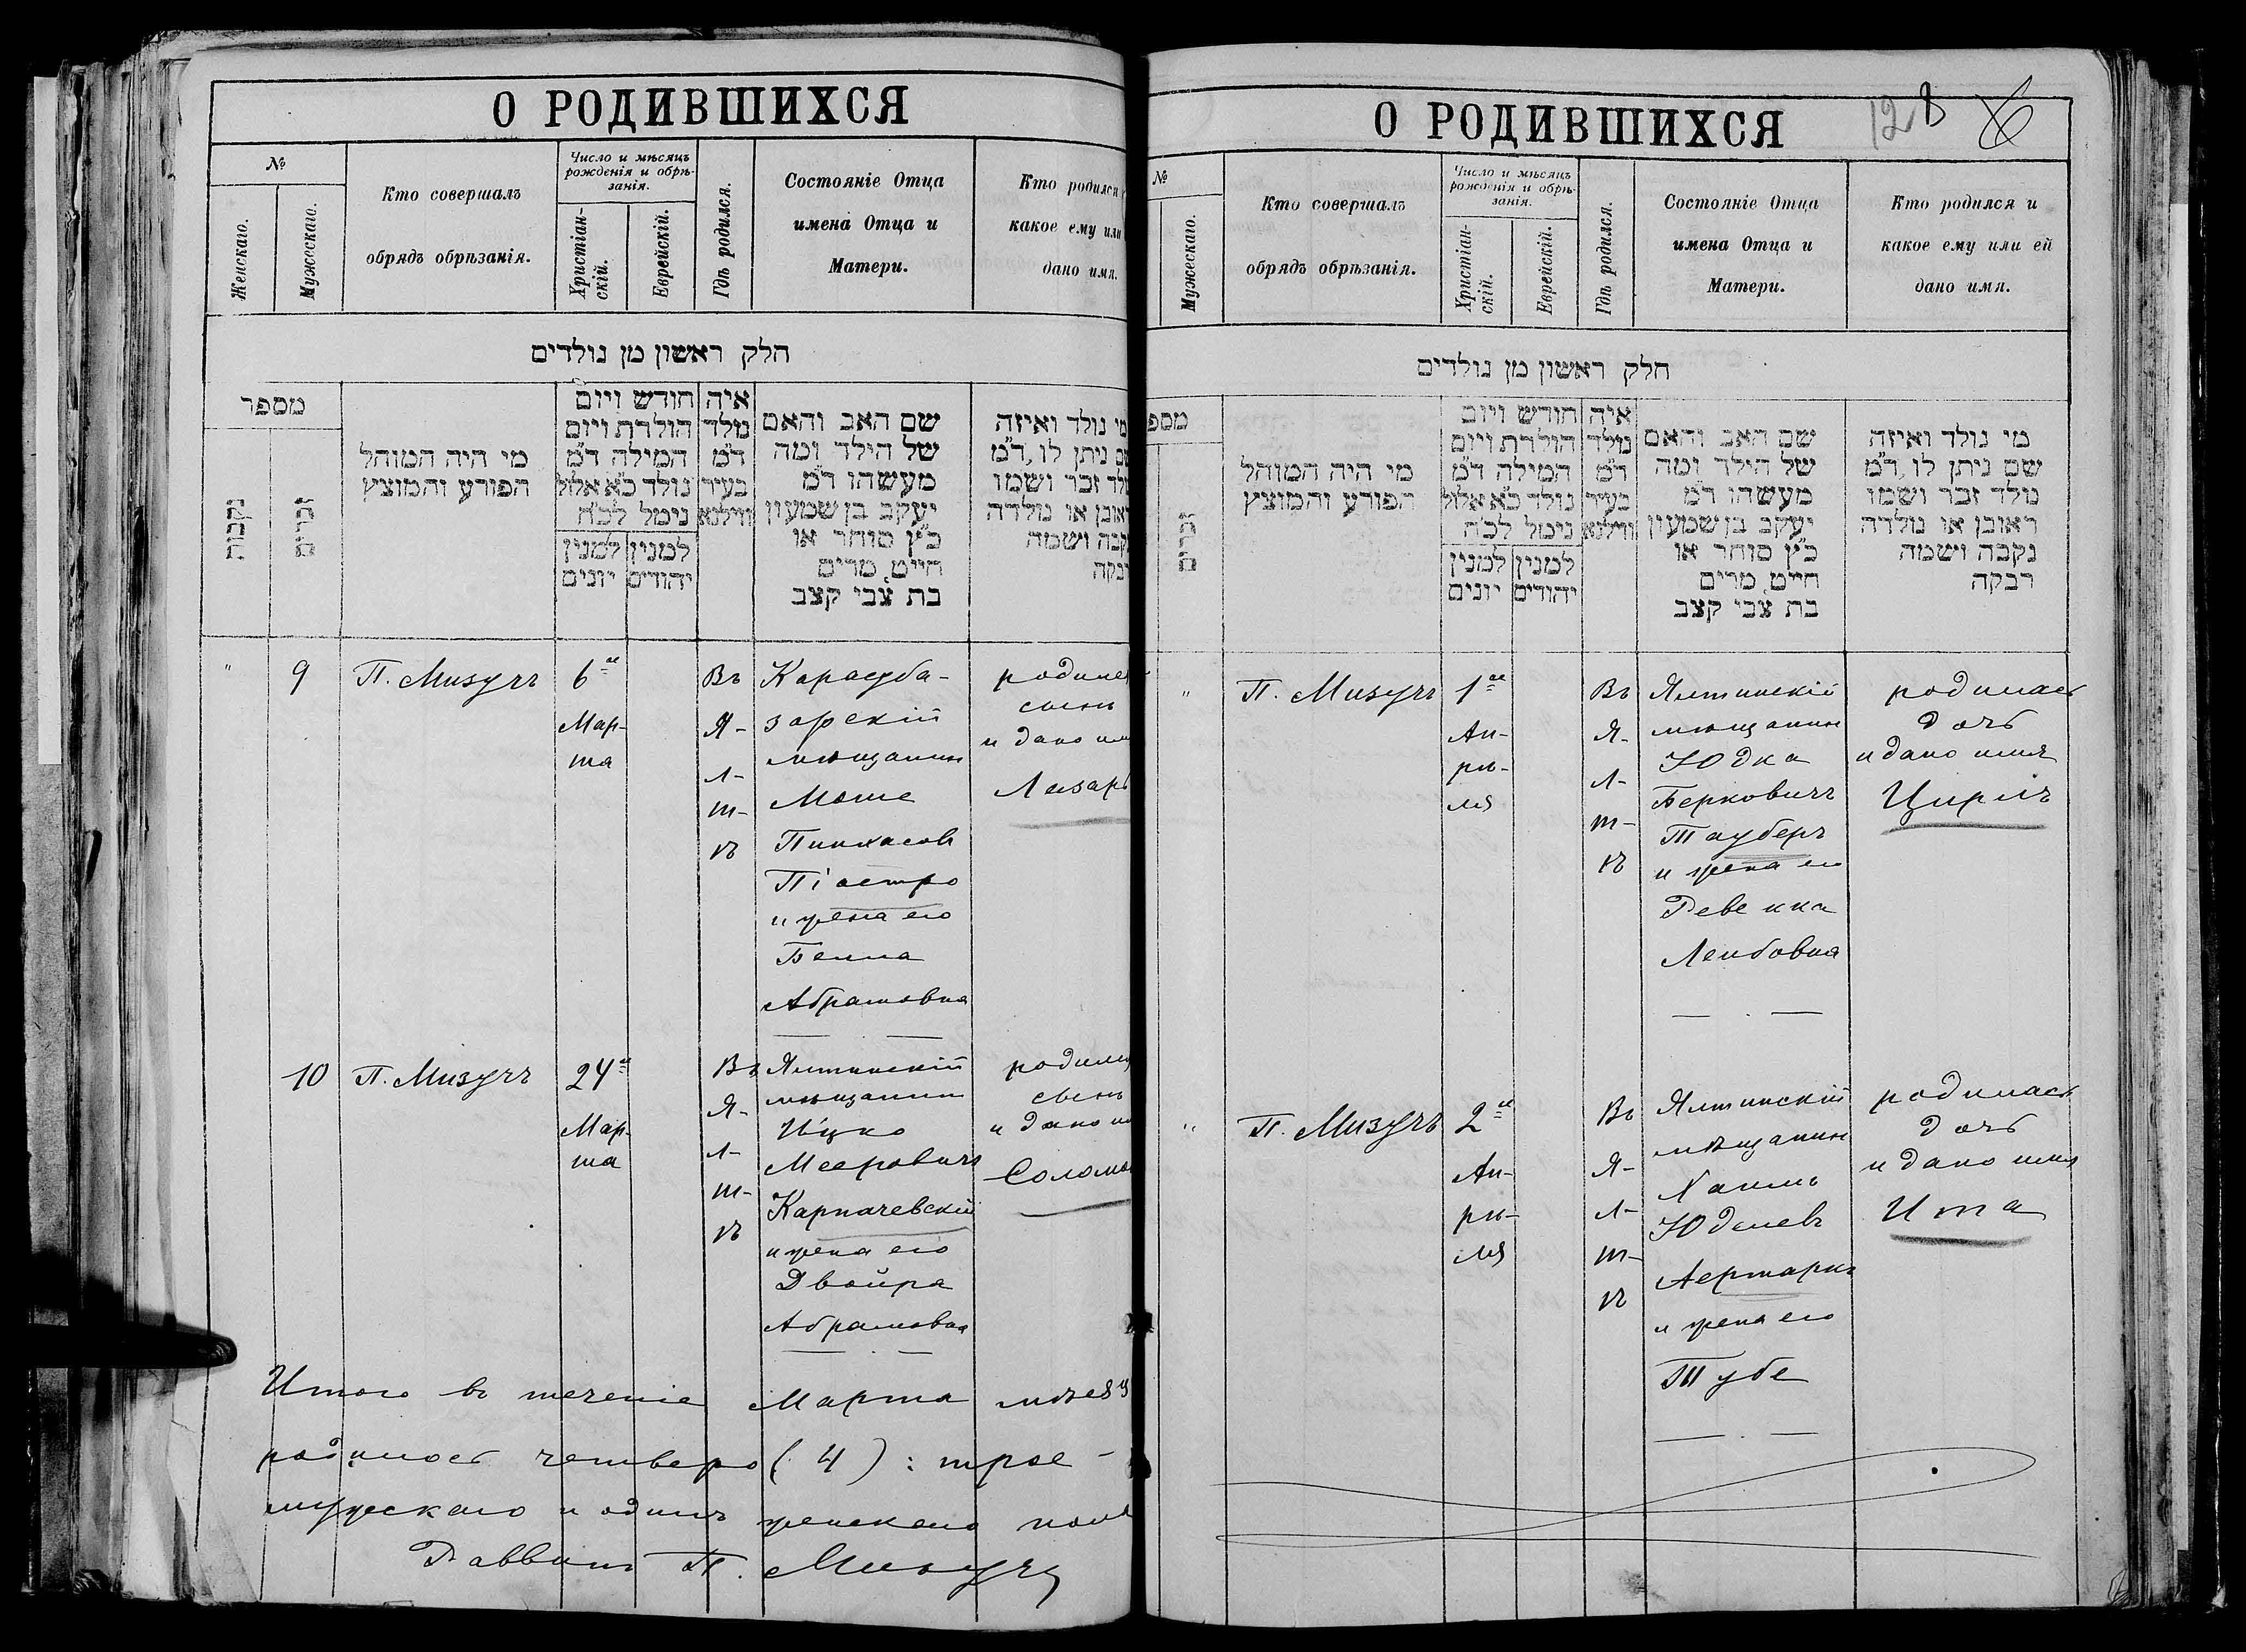 О РОДИВШИХСЯ
№
Женскаго.
Мужескаго.
Кто совершалъ
обрядъ обрѣзанія.
Число и мѣсяцъ
рожденія и обрѣ-
занія.
Христіан-
скій.
Еврейскій.
Гдѣ родился.
Состояніе Отца
имена Отца и
Матери.
Кто родился
какое ему или
дано имя.
חלק ראשון מן נולדים
מספר
נקבות
זכרים
מי היה המוהל
הפורע והמוצץ
חודש ויום
הולדת ויום
המילה ד״מ
נולד כ״א אלול
נימל לכ״ח
למנין
יהודים
למנין
יונים
איה
נולד
ד״מ
בעיר
ווילנא
שם האב והאם
של הילד ומה
מעשהו ד״מ
יעקב בן שמעון
כ״ץ סוחר או
חייט, מרים
בת צבי קצב
מי נולד ואיזה
שם ניתן לו, ד״מ
נולד זכר ושמו
ראובן או נולדה
נקבה ושמה
" 9
П. Мизучъ
6го
Мар-
та
Въ
Я-
л-
т-
ѣ
Карасуба-
зарскій
мѣщанин
Моше
Пинхасовъ
Піастро
и жена его
Бенна
Абрамовна
родился
сынъ
и дано имя
Лазарь
10
П. Мизучъ
24го
Мар-
та
Въ
Я-
л-
т-
ѣ
Ялтинскій
мѣщанин
Ицко
Мееровичъ
Карпачевскій
и жена его
Двойра
Абрамовна
родился
сынъ
и дано
Соломо
Итого въ теченіе Марта мѣсяц
родилось четверо (4): трое -
мужескаго и одинъ женскаго пола
Раввинъ П. Мизучъ
О РОДИВШИХСЯ
128
6
№
Мужескаго.
Кто совершалъ
обрядъ обрѣзанія.
Число и мѣсяцъ
рожденія и обрѣ-
занія.
Христіан-
скій.
Еврейскій.
Гдѣ родился.
Состояніе Отца
имена Отца и
Матери.
Кто родился и
какое ему или ей
дано имя.
חלק ראשון מן נולדים
מספ
זכרים
מי היה המוהל
הפורע והמוצץ
חודש ויום
הולדת ויום
המילה ד״מ
נולד כ״א אלול
נימל לכ״ח
למנין
יהודים
למנין
יונים
איה
נולד
ד״מ
בעיר
ווילנא
שם האב והאם
של הילד ומה
מעשהו ד״מ
יעקב בן שמעון
כ״ץ סוחר או
חייט, מרים
בת צבי קצב
מי נולד ואיזה
שם ניתן לו, ד״מ
נולד זכר ושמו
ראובן או נולדה
נקבה ושמה
רבקה
"
П. Мизучъ
1го
Ап-
рѣ-
ля
Въ
Я-
л-
т-
ѣ
Ялтинскій
мѣщанин
Юдка
Берковичъ
Тауберъ
и жена его
Ревекка
Лейбовна
родилась
дочь
и дано имя
Цирль
"
П. Мизучъ
2го
Ап-
рѣ-
ля
Въ
Я-
л-
т-
ѣ
Ялтинскій
мѣщанин
Хаимъ
Юделевъ
и жена его
Тубе
родилась
дочь
и дано имя
Ита